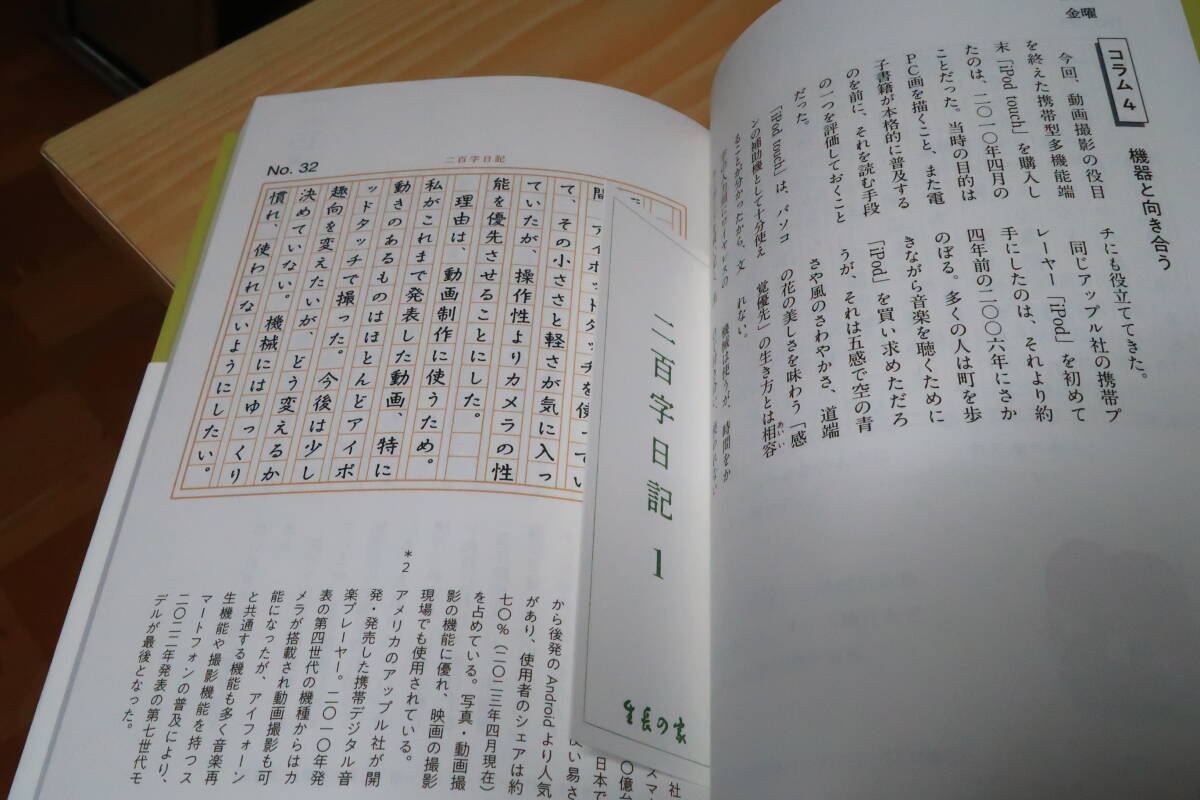 金曜
コラム 4
機器と向き合う
今回、動画撮影の役目
を終えた携帯型多機能端
末「iPod touch」を購入し
たのは、二〇一〇年四月の
ことだった。当時の目的は
PC画を描くこと、また電
子書籍が本格的に普及する
のを前に、それを読む手段
の一つを評価しておくこと
だった。
「iPod touch」は、パソコ
ンの補助機として十分使え
ることが分かったから、文
チにも役立ててきた。
同じアップル社の携帯プ
レーヤー「iPod」を初めて
手にしたのは、それより約
四年前の二〇〇六年にさか
のぼる。多くの人は町を歩
きながら音楽を聴くために
「iPod」を買い求めただろ
うが、それは五感で空の青
さや風のさわやかさ、道端
の花の美しさを味わう「感
覚優先」の生き方とは相容
あいい
れない。
機械は使うが、時間をか
二百字日記 1
生長の家
二百字日記
No. 32
間、アイポッドタッチを使ってい
て、その小ささと軽さが気に入っ
ていたが、操作性よりカメラの性
能を優先させることにした。
理由は、動画制作に使うため。
私がこれまで発表した動画、特に
動きのあるものはほとんどアイポ
ッドタッチで撮った。今後は少し
趣向を変えたいが、どう変えるか
決めていない。機械にはゆっくり
慣れ、使われないようにしたい。
から後発の Android より人気
があり、使用者のシェアは約
七〇%（二〇二三年四月現在）
を占めている。写真・動画撮
影の機能に優れ、映画の撮影
現場でも使用されている。
*2
アメリカのアップル社が開
発・発売した携帯デジタル音
楽プレーヤー。二〇一〇年発
表の第四世代の機種からはカ
メラが搭載され動画撮影も可
能になったが、アイフォーン
と共通する機能も多く音楽再
生機能や撮影機能を持つス
マートフォンの普及により、
二〇二二年発表の第七世代モ
デルが最後となった。